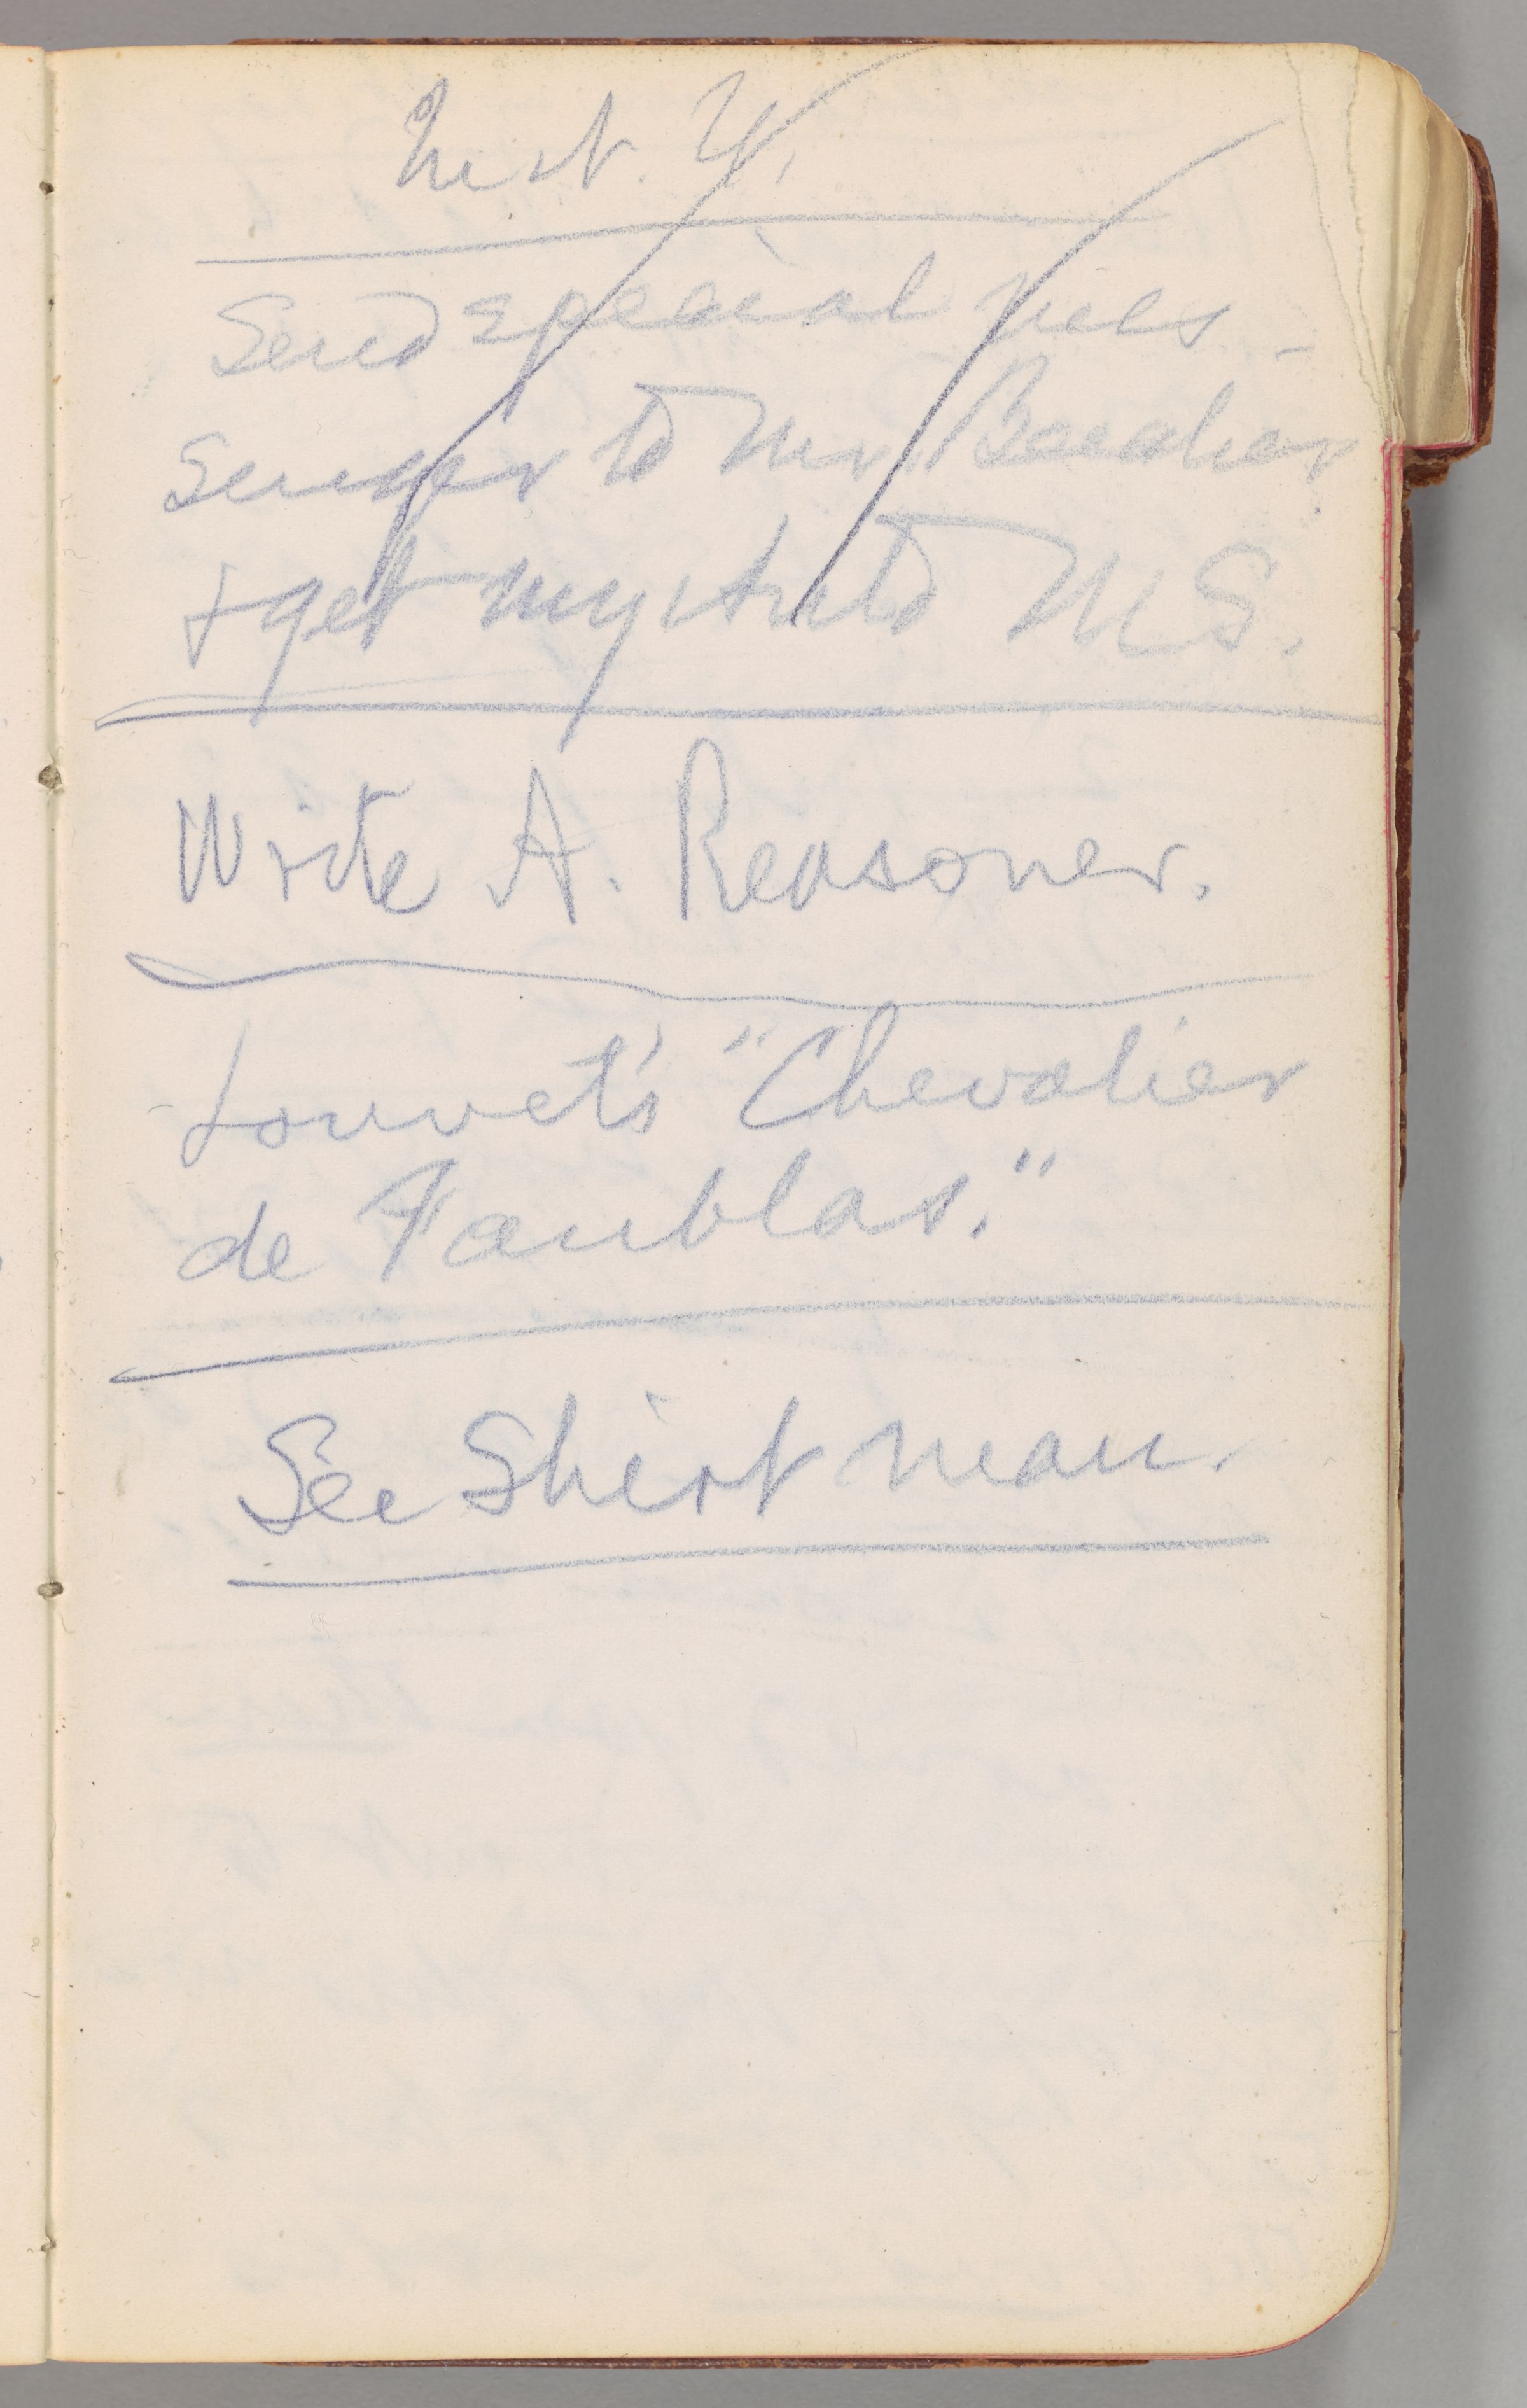 Send special mes-
senger to Mr. Beecher
+ get my Auto MS.
Write A. Reasoner.
Louvet's "Chevalier
de Faublas."
See Shirt man.